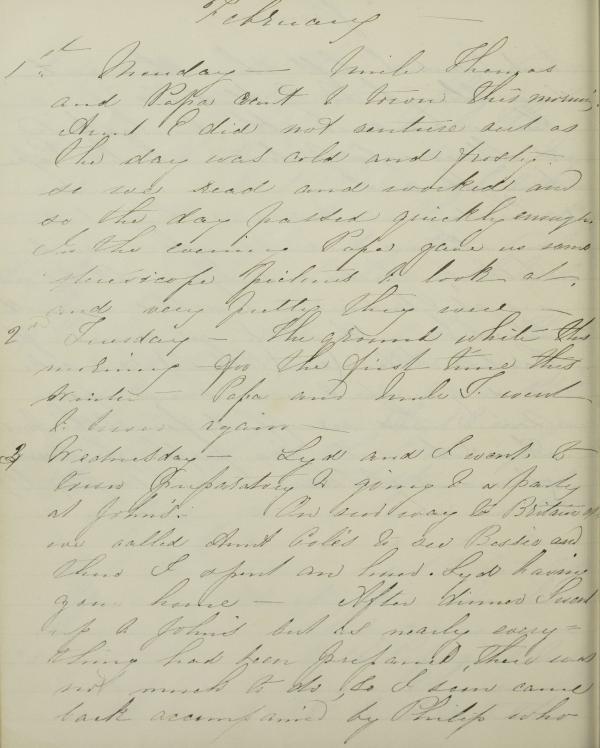 February —
1st Monday — Uncle Thomas
and Papa went to town this morning.
Aunt E did not venture out as
the day was cold and frosty.
so we read and worked and
so the day passed quickly enough.
In the evening Papa gave us some
stereoscope pictures to look at,
and very pretty they were —
2nd Tuesday — The ground white this
morning for the first time this
Winter — Papa and Uncle T. went
to town again —
3 Wednesday — Lyd and I went to
town preparatory to going to a party
at John's. On our way to
we called Aunt Cole's to see Bessie and
there I spent an hour. Lyd having
gone home — After dinner I went
up to John's but as nearly every=
thing had been prepared, there was
not much to do, so I soon came
back accompanied by Philip who